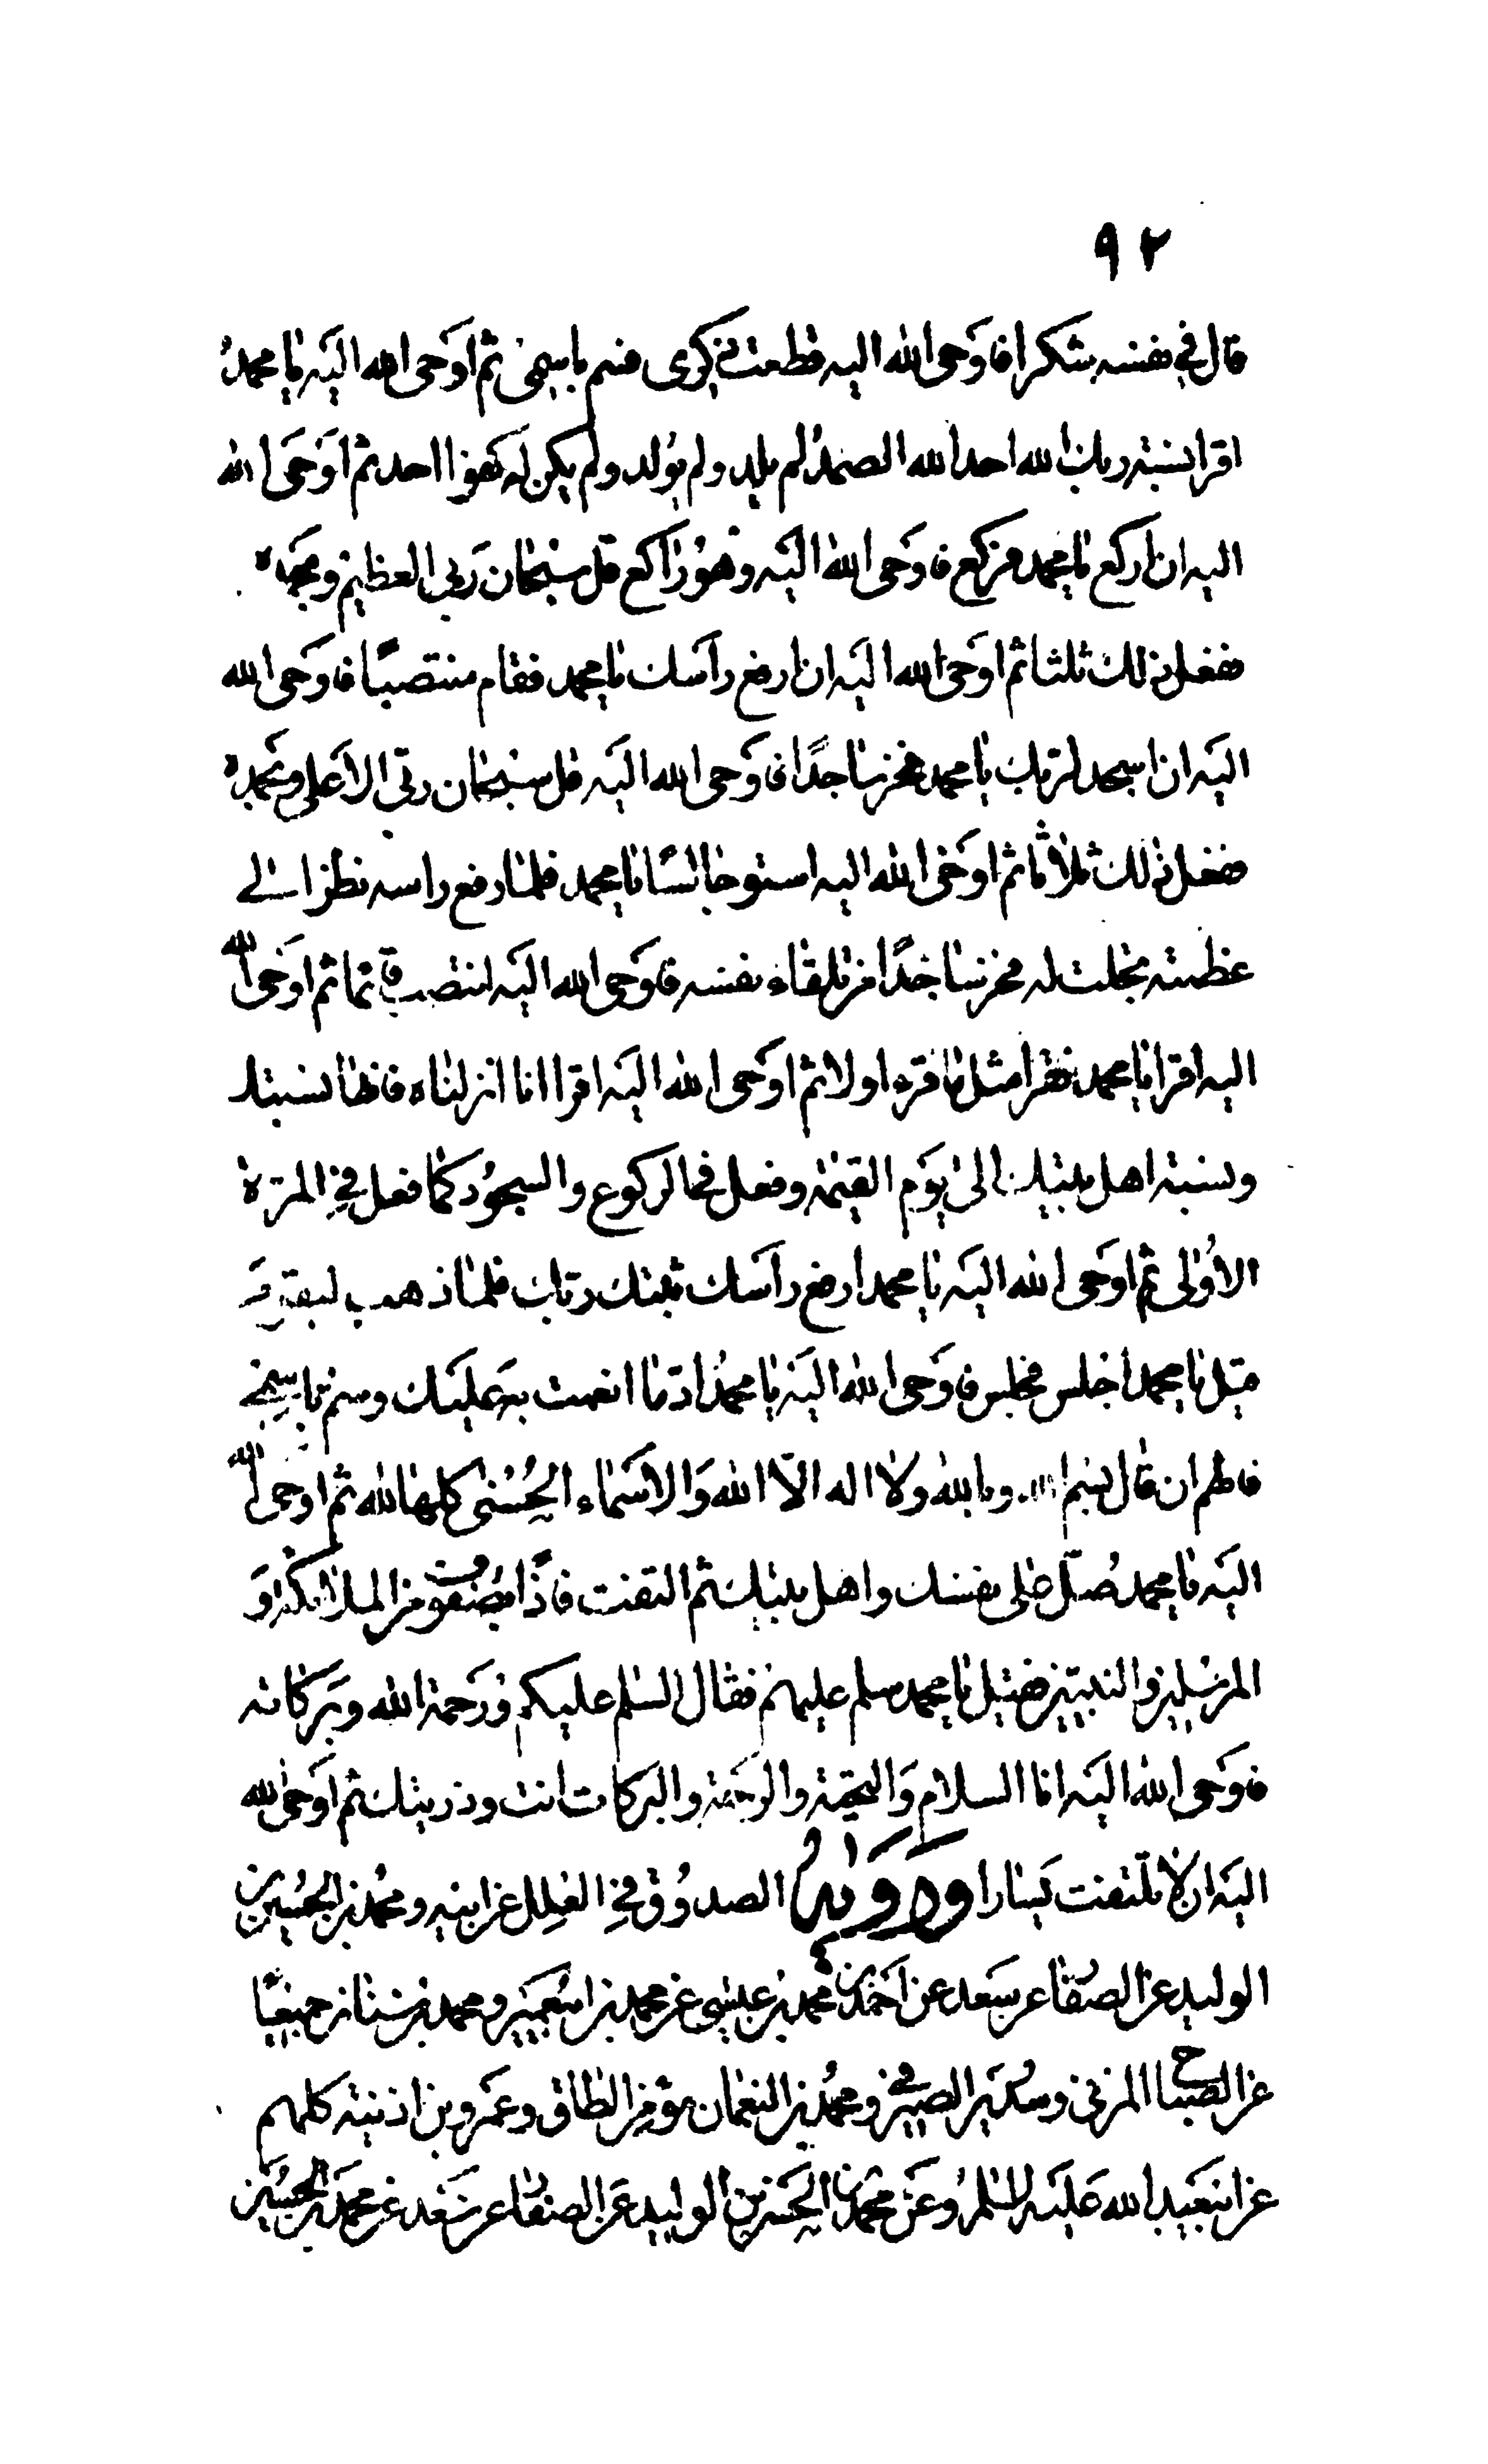 ٩٢
قال في نفسه شكرا فاوحى الله اليه قطعت ذكرى فسم باسمى ثم اوحى الله اليه يا محمد
اقرا نسبة ربك الله احد الله الصمد لم يلد ولم يولد ولم يكن له كفوا احد ثم اوحى الله
اليه ان اركع يا محمد فركع فاوحى الله اليه وهو راكع قل سبحان ربى العظيم وبحمده
ففعل ذلك ثلثا ثم اوحى الله اليه ان ارفع راسك يا محمد فقام منتصبا فاوحى الله
اليه ان اسجد لربك يا محمد فخر ساجدا فاوحى الله اليه قل سبحان ربى الاعلى وبحمده
ففعل ذلك ثلاثا ثم اوحى الله اليه استو جالسا يا محمد فلما رفع راسه نظر الى
عظمته تجلت له فخر ساجدا من تلقاء نفسه فاوحى الله اليه انتصب قائما ثم اوحى الله
اليه اقرا يا محمد فقرا مثل ما قره اولا ثم اوحى الله اليه اقرا انا انزلناه فانها نسبتك
ونسبة اهل بيتك الى يوم القيمة وفعل في الركوع والسجود كما فعل في المرة
الاولى ثم اوحى الله اليه يا محمد ارفع راسك ثبتك ربك فلما ذهب ليقوم
قيل يا محمد اجلس فجلس فاوحى الله اليه يا محمد اذا ما انعمت به عليك وسم باسمى
فالهم ان قال بسم الله وبالله ولا اله الا الله والاسماء الحسنى كلها لله ثم اوحى الله
اليه يا محمد صل على نفسك واهل بيتك ثم التفت فاذا بصفوف من الملائكة و
المرسلين والنبيين فقيل يا محمد سلم عليهم فقال السلم عليكم ورحمة الله وبركاته
فاوحى الله اليه انا السلام والتحية والرحمة والبركات انت وذريتك ثم اوحى الله
اليه ان لا تلتفت يسارا ورواه الصدوق في العلل عن ابيه ومحمد بن الحسين بن
الوليد عن الصفار عن سعد عن احمد بن محمد بن عيسى عن محمد بن ابى عمير ومحمد بن سنان جميعا
عن الصباح المزنى وسدير الصيرفى ومحمد بن النعمان مؤمن الطاق وعمرو بن اذينة كلهم
عن ابى عبد الله عليه السلم وعن محمد بن الحسن بن الوليد عن الصفار عن سعد عن محمد بن الحسين